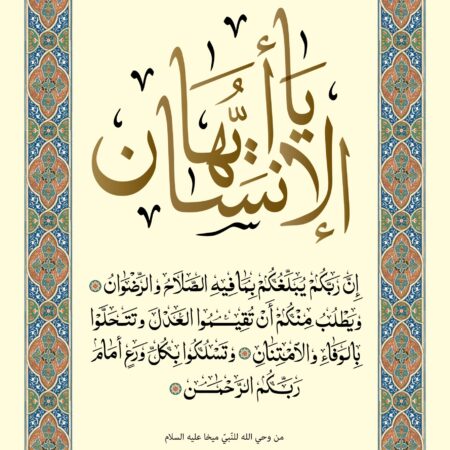 يَا أَيُّهَا
الإِنْسَان
إِنَّ رَبَّكُمْ يُبَلِّغُكُمْ بِمَا فِيهِ الصَّلَاحُ وَالرِّضْوَانُ
وَيَطْلُبُ مِنْكُمْ أَنْ تُقِيمُوا العَدْلَ وَتَتَحَلَّوْا
بِالوَفَاءِ وَالاِمْتِنَانِ وَتَسْلُكُوا بِكُلِّ وَرَعٍ أَمَامَ
رَبِّكُمُ الرَّحْمَـٰنِ
من وحي الله للنّبيّ ميخا عليه السلام